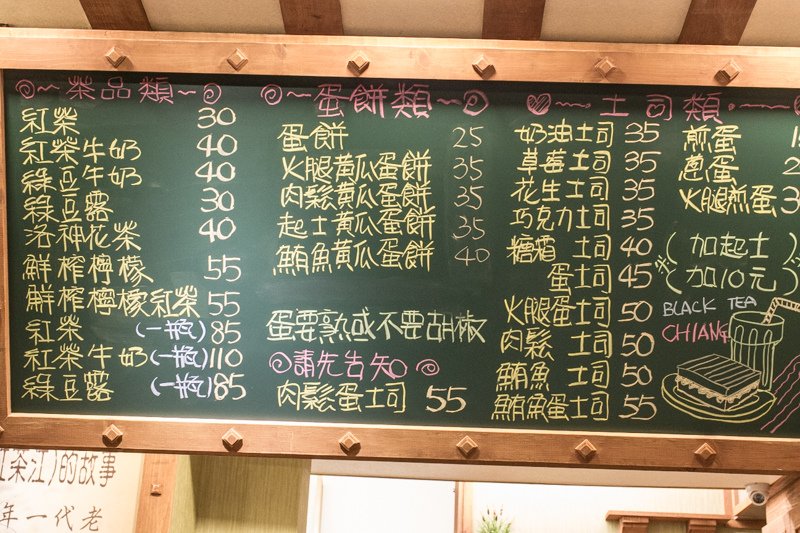 茶品類
紅茶 30
紅茶牛奶 40
綠豆牛奶 40
綠豆露 30
洛神花茶 40
鮮榨檸檬 55
鮮榨檸檬紅茶 55
紅茶 (一瓶) 85
紅茶牛奶 (一瓶) 110
綠豆露 (一瓶) 85
蛋餅類
蛋餅 25
火腿黃瓜蛋餅 35
肉鬆黃瓜蛋餅 35
起士黃瓜蛋餅 35
鮪魚黃瓜蛋餅 40
蛋要熟或不要胡椒
請先告知
肉鬆蛋土司 55
土司類
奶油土司 35
草莓土司 35
花生土司 35
巧克力土司 35
糖霜 土司 40
蛋土司 45
火腿蛋土司 50
肉鬆 土司 50
鮪魚 土司 50
鮪魚蛋土司 55
煎蛋
蔥蛋
火腿煎蛋
(加起士)
(加10元)
BLACK TEA
CHIANG
茶江)的故事
年一代老